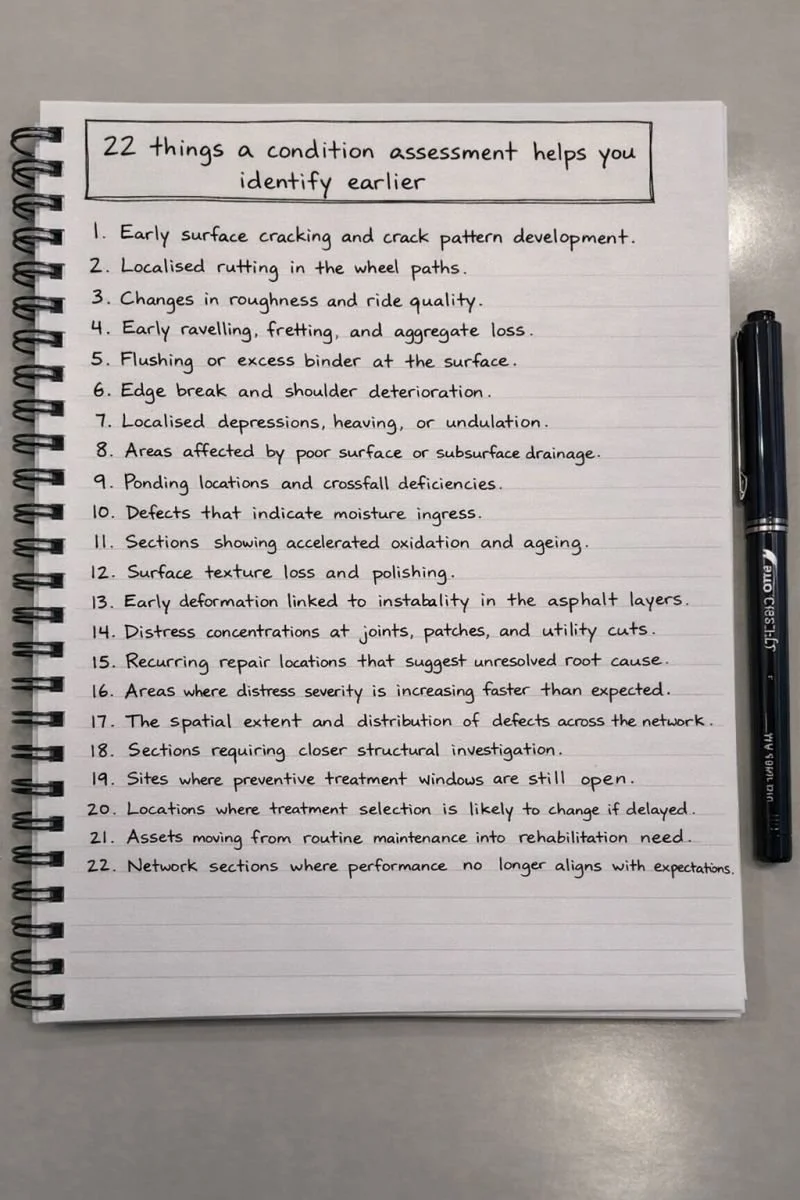 22 things a condition assessment helps you
identify earlier
1. Early surface cracking and crack pattern development.
2. Localised rutting in the wheel paths.
3. Changes in roughness and ride quality.
4. Early ravelling, fretting, and aggregate loss.
5. Flushing or excess binder at the surface.
6. Edge break and shoulder deterioration.
7. Localised depressions, heaving, or undulation.
8. Areas affected by poor surface or subsurface drainage.
9. Ponding locations and crossfall deficiencies.
10. Defects that indicate moisture ingress.
11. Sections showing accelerated oxidation and ageing.
12. Surface texture loss and polishing.
13. Early deformation linked to instabality in the asphalt layers.
14. Distress concentrations at joints, patches, and utility cuts.
15. Recurring repair locations that suggest unresolved root cause.
16. Areas where distress severity is increasing faster than expected.
17. The spatial extent and distribution of defects across the network.
18. Sections requiring closer structural investigation.
19. Sites where preventive treatment windows are still open.
20. Locations where treatment selection is likely to change if delayed.
21. Assets moving from routine maintenance into rehabilitation need.
22. Network sections where performance no longer aligns with expectations.